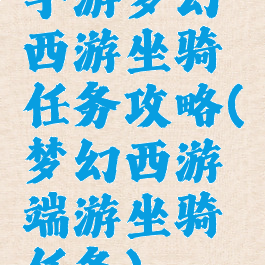 手游梦幻
西游坐骑
任务攻略(
梦幻西游
端游坐骑
任务)